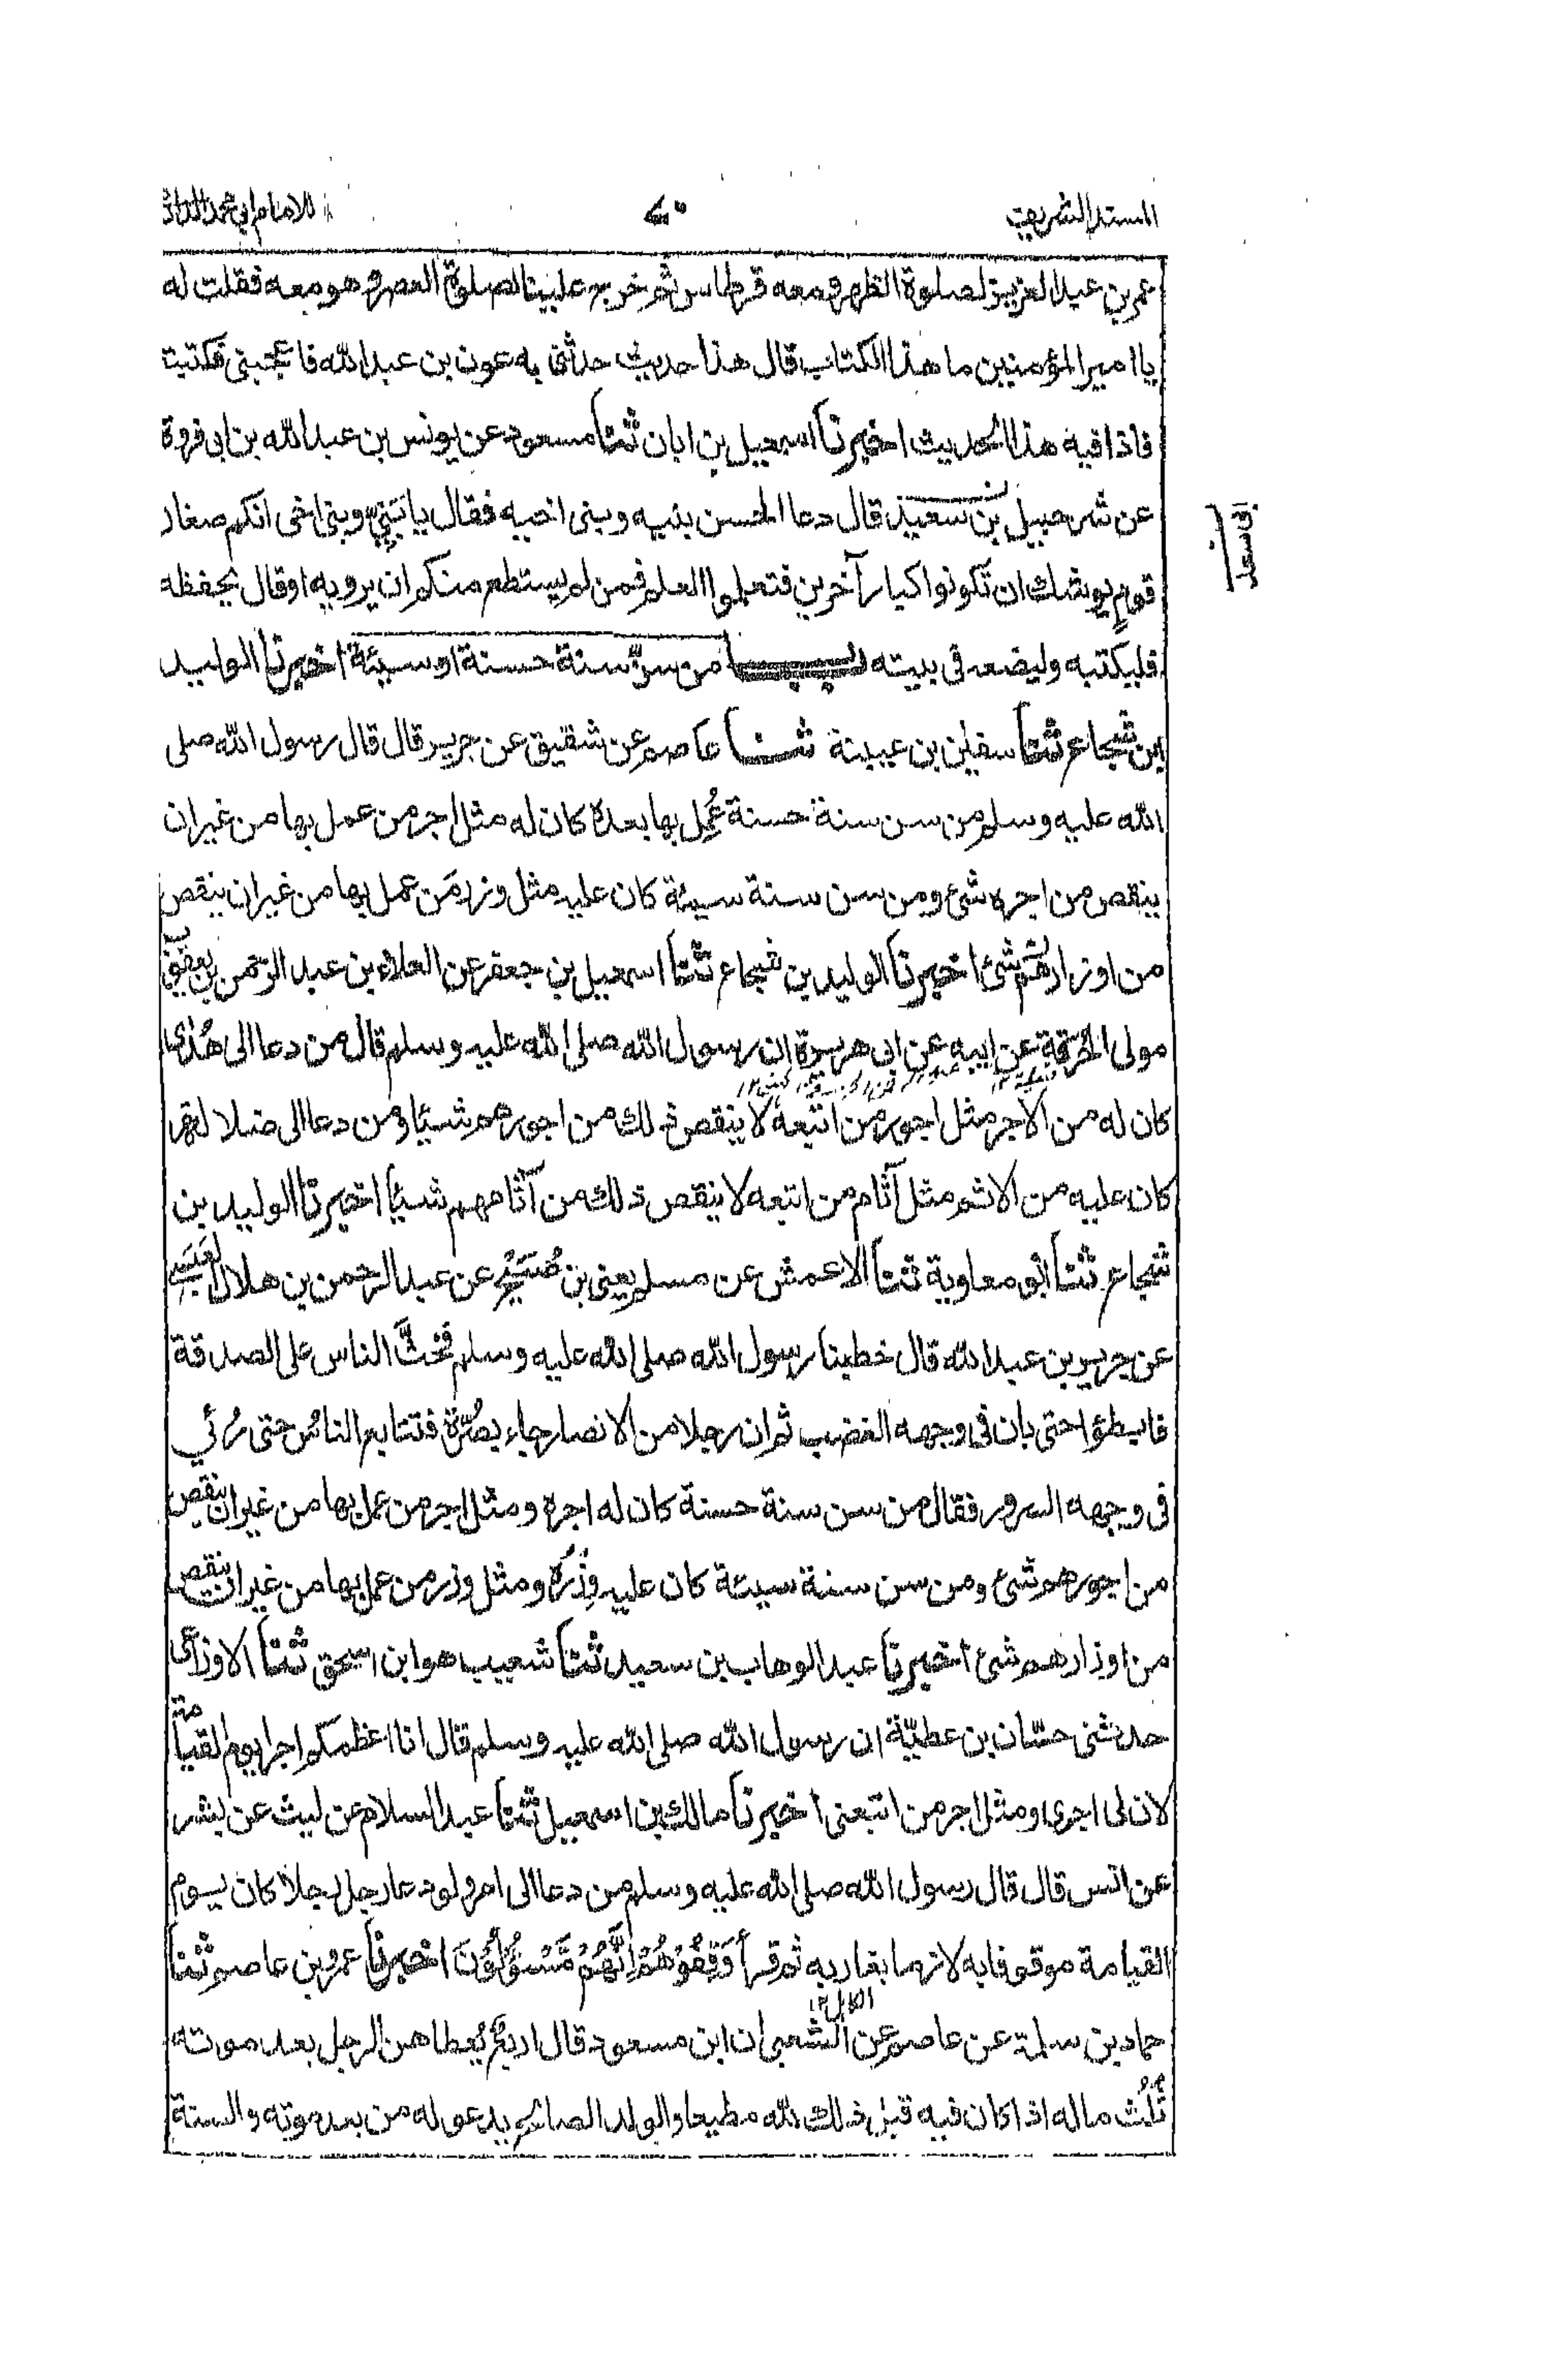 المسند الشريف ٧٠ للامام ابي محمد الدارمي
عمر بن عبد العزيز لصلوة الظهر ومعه قرطاس ثم خرج علينا لصلوة العصر وهو معه فقلت له
يا امير المؤمنين ما هذا الكتاب قال هذا حديث حدثني به عون بن عبد الله فاعجبني فكتبته
فاذا فيه هذا الحديث اخبرنا اسمعيل بن ابان ثنا مسعود عن يونس بن عبد الله بن ابي فروة
عن شرحبيل بن سعيد قال دعا الحسن بنيه وبني اخيه فقال يا بَنِيَّ وبني اخي انكم صغار
قومٍ يوشك ان تكونوا كبار آخرين فتعلموا العلم فمن لم يستطع منكم ان يرويه او قال يحفظه
فليكتبه وليضعه في بيته باب من سنّ سنة حسنة او سيئة اخبرنا الوليد
ابن شجاع ثنا سفين بن عيينة ثنا عاصم عن شقيق عن جرير قال قال رسول الله صلى
الله عليه وسلم من سن سنة حسنة عُمِل بها بعده كان له مثل اجر من عمل بها من غير ان
ينقص من اجره شئ ومن سن سنة سيئة كان عليه مثل وزر مَن عمل بها من غير ان ينقص
من اوزارهم شئ اخبرنا الوليد بن شجاع ثنا اسمعيل بن جعفر عن العلاء بن عبد الرحمن بن يعقوب
مولى الحُرَقة عن ابيه عن ابي هريرة ان رسول الله صلى الله عليه وسلم قال من دعا الى هُدًى
كان له من الاجر مثل اجور من اتبعه لا ينقص ذلك من اجورهم شيئا ومن دعا الى ضلالة
كان عليه من الاثم مثل آثام من اتبعه لا ينقص ذلك من آثامهم شيئا اخبرنا الوليد بن
شجاع ثنا ابو معاوية ثنا الاعمش عن مسلم يعني بن صُبَيْح عن عبد الرحمن بن هلال العَبَسي
عن جرير بن عبد الله قال خطبنا رسول الله صلى الله عليه وسلم فحَثَّ الناس على الصدقة
فابطؤا حتى بان في وجهه الغضب ثم ان رجلا من الانصار جاء بصُرّة فتتابع الناسُ حتى رُئي
في وجهه السرور فقال من سن سنة حسنة كان له اجره ومثل اجر من عمل بها من غير ان ينقص
من اجورهم شئ ومن سن سنة سيئة كان عليه وِزْرُه ومثل وزر من عمل بها من غير ان ينقص
من اوزارهم شئ اخبرنا عبد الوهاب بن سعيد ثنا شعيب هو ابن اسحق ثنا الاوزاعي
حدثني حسّان بن عطيّة ان رسول الله صلى الله عليه وسلم قال انا اعظمكم اجرا يوم القيامة
لان لي اجري ومثل اجر من اتبعني اخبرنا مالك بن اسمعيل ثنا عبد السلام عن ليث عن بشر
عن انس قال قال رسول الله صلى الله عليه وسلم من دعا الى امر ولو دعا رجل رجلا كان يوم
القيامة موقوفا به لازما بغاربه ثم قرأ وَقِفُوْهُمْ اِنَّهُمْ مَّسْئُوْلُوْنَ اخبرنا عمرو بن عاصم ثنا
حماد بن سلمة عن عاصم عن الشعبي ان ابن مسعود قال اربع يُعطاهن الرجل بعد موته
ثُلُث ماله اذا كان فيه قبل ذلك لله مطيعا والولد الصالح يدعو له من بعد موته والسنة